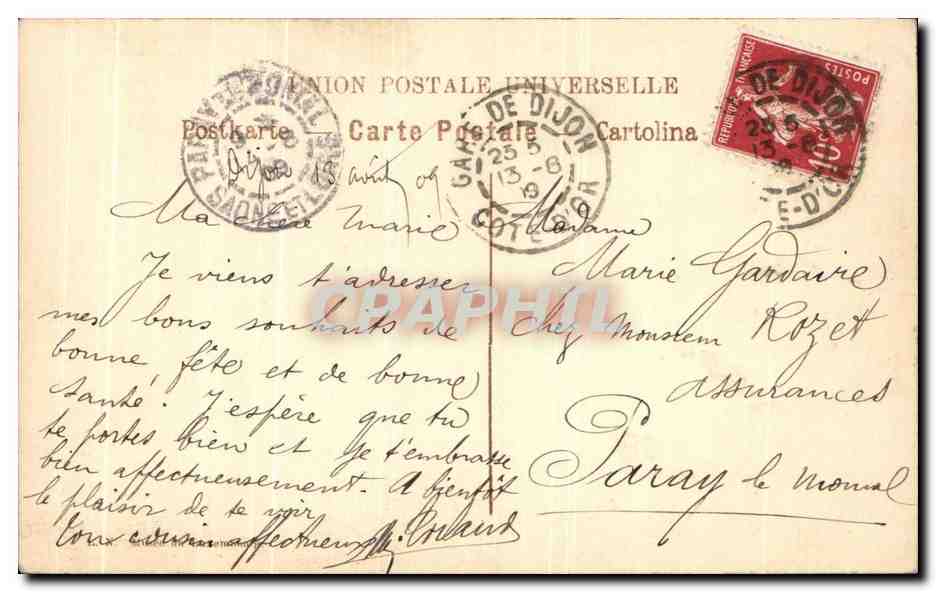 UNION POSTALE UNIVERSELLE
Postkarte — Carte Postale — Cartolina
REPUBLIQUE FRANÇAISE
POSTES
10
GARE DE DIJON
23 5
13-8
9
COTE-D'OR
DE DIJON
23 5
13-8
E-D'OR
PARAY-LE-MONIAL
SAONE-ET-LOIRE
Dijon 13 août 09
Ma chère Marie
Je viens t'adresser
mes bons souhaits de
bonne fête et de bonne
santé. J'espère que tu
te portes bien et je t'embrasse
bien affectueusement. A bientôt
le plaisir de te voir
Ton cousin affectueux
Madame
Marie Gardaire
chez Monsieur Rozet
assurances
Paray le Monial
CPAPHIL